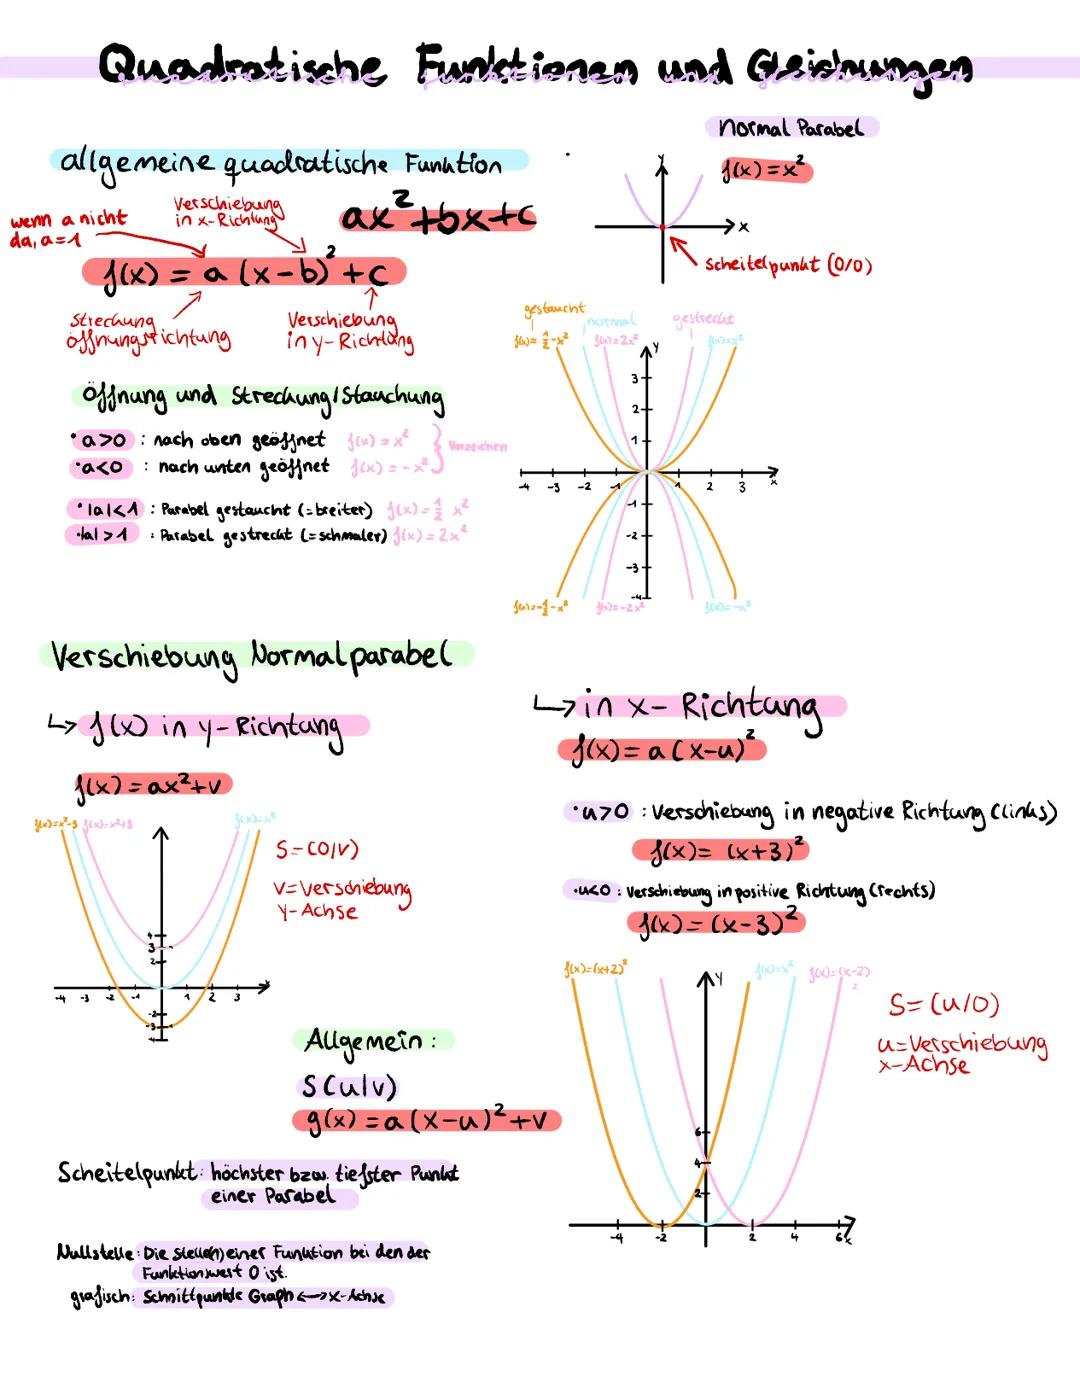 Quadratische Funktionen und Gleichungen
Normal Parabel
f(x) = x²
y
x
Scheitelpunkt (0/0)
allgemeine quadratische Funktion
ax²+bx+c
wenn a nicht
da, a=1
Verschiebung
in x-Richtung
f(x) = a (x-b)² + c
Streckung
öffnungsrichtung
Verschiebung
in y-Richtung
Öffnung und Streckung/Stauchung
• a>0 : nach oben geöffnet f(x) = x²
• a<0 : nach unten geöffnet f(x) = -x²
Vorzeichen
• |a|<1 : Parabel gestaucht (=breiter) f(x) = 1/2 x²
• |a|>1 : Parabel gestreckt (=schmaler) f(x) = 2x²
gestaucht
normal
gestreckt
f(x)= 1/2-x²
f(x)=2x²
f(x)=x²
y
3
2
1
-4 -3 -2 -1 1 2 3 x
-1
-2
-3
-4
f(x)=-1/2-x²
f(x)=-2x²
f(x)=-x²
Verschiebung Normalparabel
↳ f(x) in y-Richtung
f(x) = ax²+v
f(x)=x²-3 f(x)=x²+3 f(x)=x²
S=(0/v)
v=Verschiebung
y-Achse
4
3
2
-4 -3 -2 -1 1 2 3 x
-2
-3
-4
↳ in x-Richtung
f(x) = a (x-u)²
• u>0 : Verschiebung in negative Richtung (links)
f(x) = (x+3)²
• u<0 : Verschiebung in positive Richtung (rechts)
f(x) = (x-3)²
f(x)=(x+2)²
y
f(x)=x²
f(x)=(x-2)²
S=(u/0)
u=Verschiebung
x-Achse
6
4
2
-4 -2 2 4 6 x
Allgemein :
S(u|v)
g(x) = a (x-u)² + v
Scheitelpunkt: höchster bzw. tiefster Punkt
einer Parabel
Nullstelle: Die Stelle(n) einer Funktion bei den der
Funktionswert 0 ist.
grafisch: Schnittpunkte Graph ↔ x-Achse